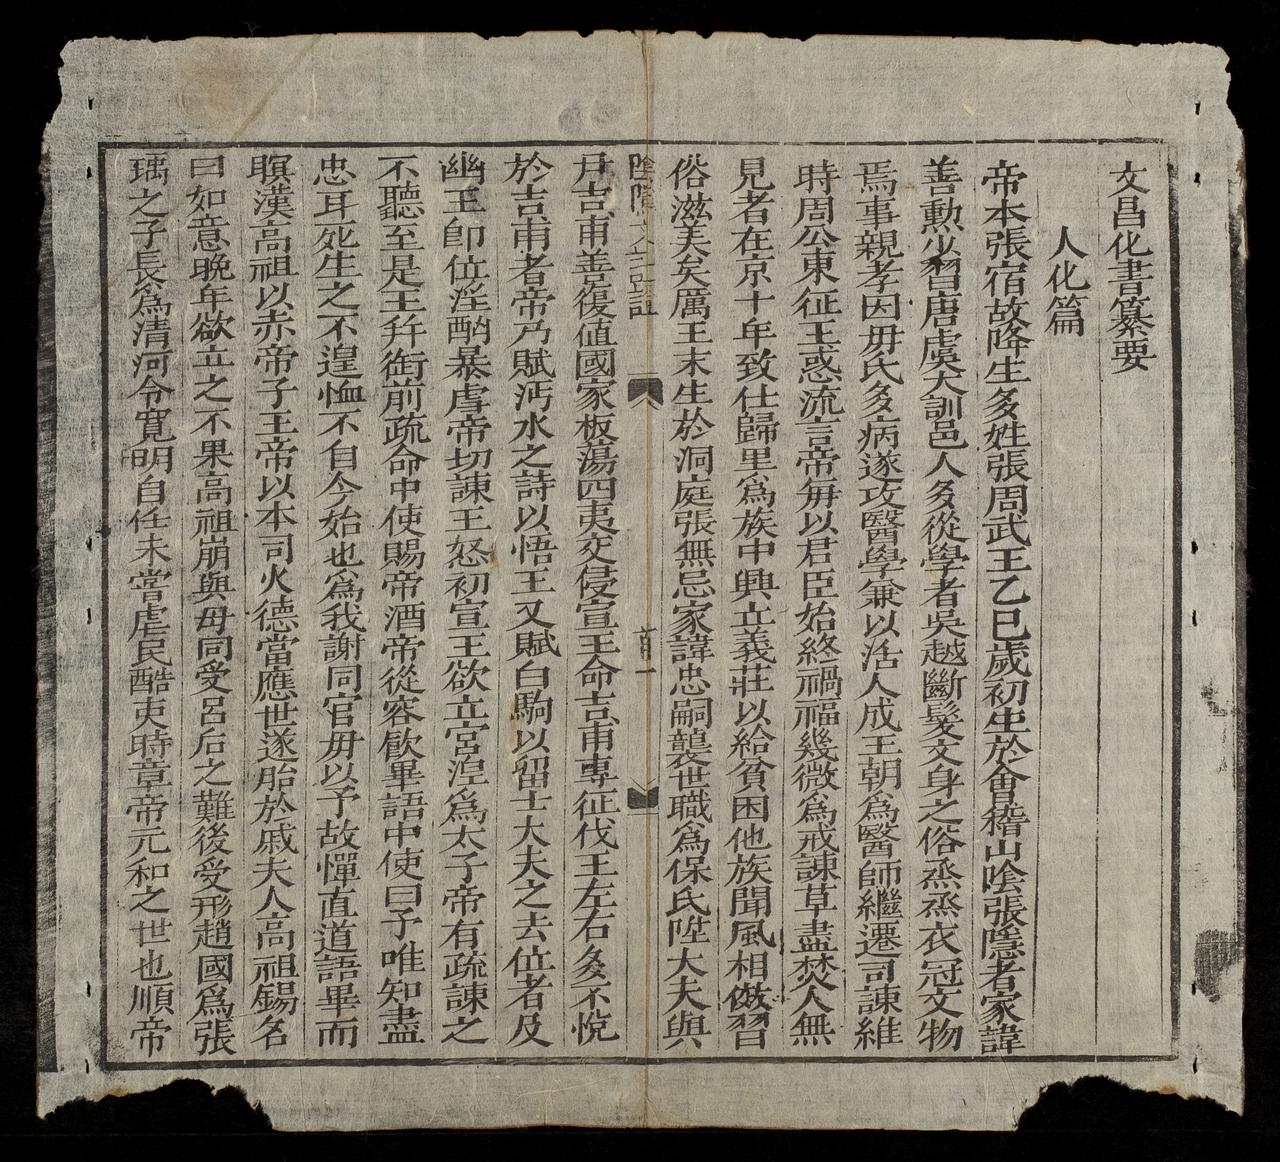 文昌化書纂要
人化篇
帝本張宿故降生多姓張周武王乙巳歲初生於會稽山陰張隱者家諱
善勳少習唐虞大訓邑人多從學者吳越斷髮文身之俗烝烝衣冠文物
焉事親孝因毋氏多病遂攻醫學兼以活人成王朝爲醫師繼遷司諫維
時周公東征王惑流言帝每以君臣始終禍福幾微爲戒諫草盡焚人無
見者在京十年致仕歸里爲族中興立義莊以給貧困他族聞風相傚習
俗滋美矣厲王末生於洞庭張無忌家諱忠嗣襲世職爲保氏陞大夫與
陰隲文 註
首 一
尹吉甫善復值國家板蕩四夷交侵宣王命吉甫專征伐王左右多不悅
於吉甫者帝乃賦沔水之詩以悟王又賦白駒以留士大夫之去位者及
幽王卽位淫酗暴虐帝切諫王怒初宣王欲立宮湼爲太子帝有疏諫之
不聽至是王幷銜前疏命中使賜帝酒帝從容飲畢語中使曰予唯知盡
忠耳死生之不遑恤不自今始也爲我謝同官毋以予故憚直道語畢而
瞑漢高祖以赤帝子王帝以本司火德當應世遂胎於戚夫人高祖錫名
曰如意晚年欲立之不果高祖崩與毋同受呂后之難後受形趙國爲張
瑀之子長爲清河令寬明自任未嘗虐民酷吏時章帝元和之世也順帝